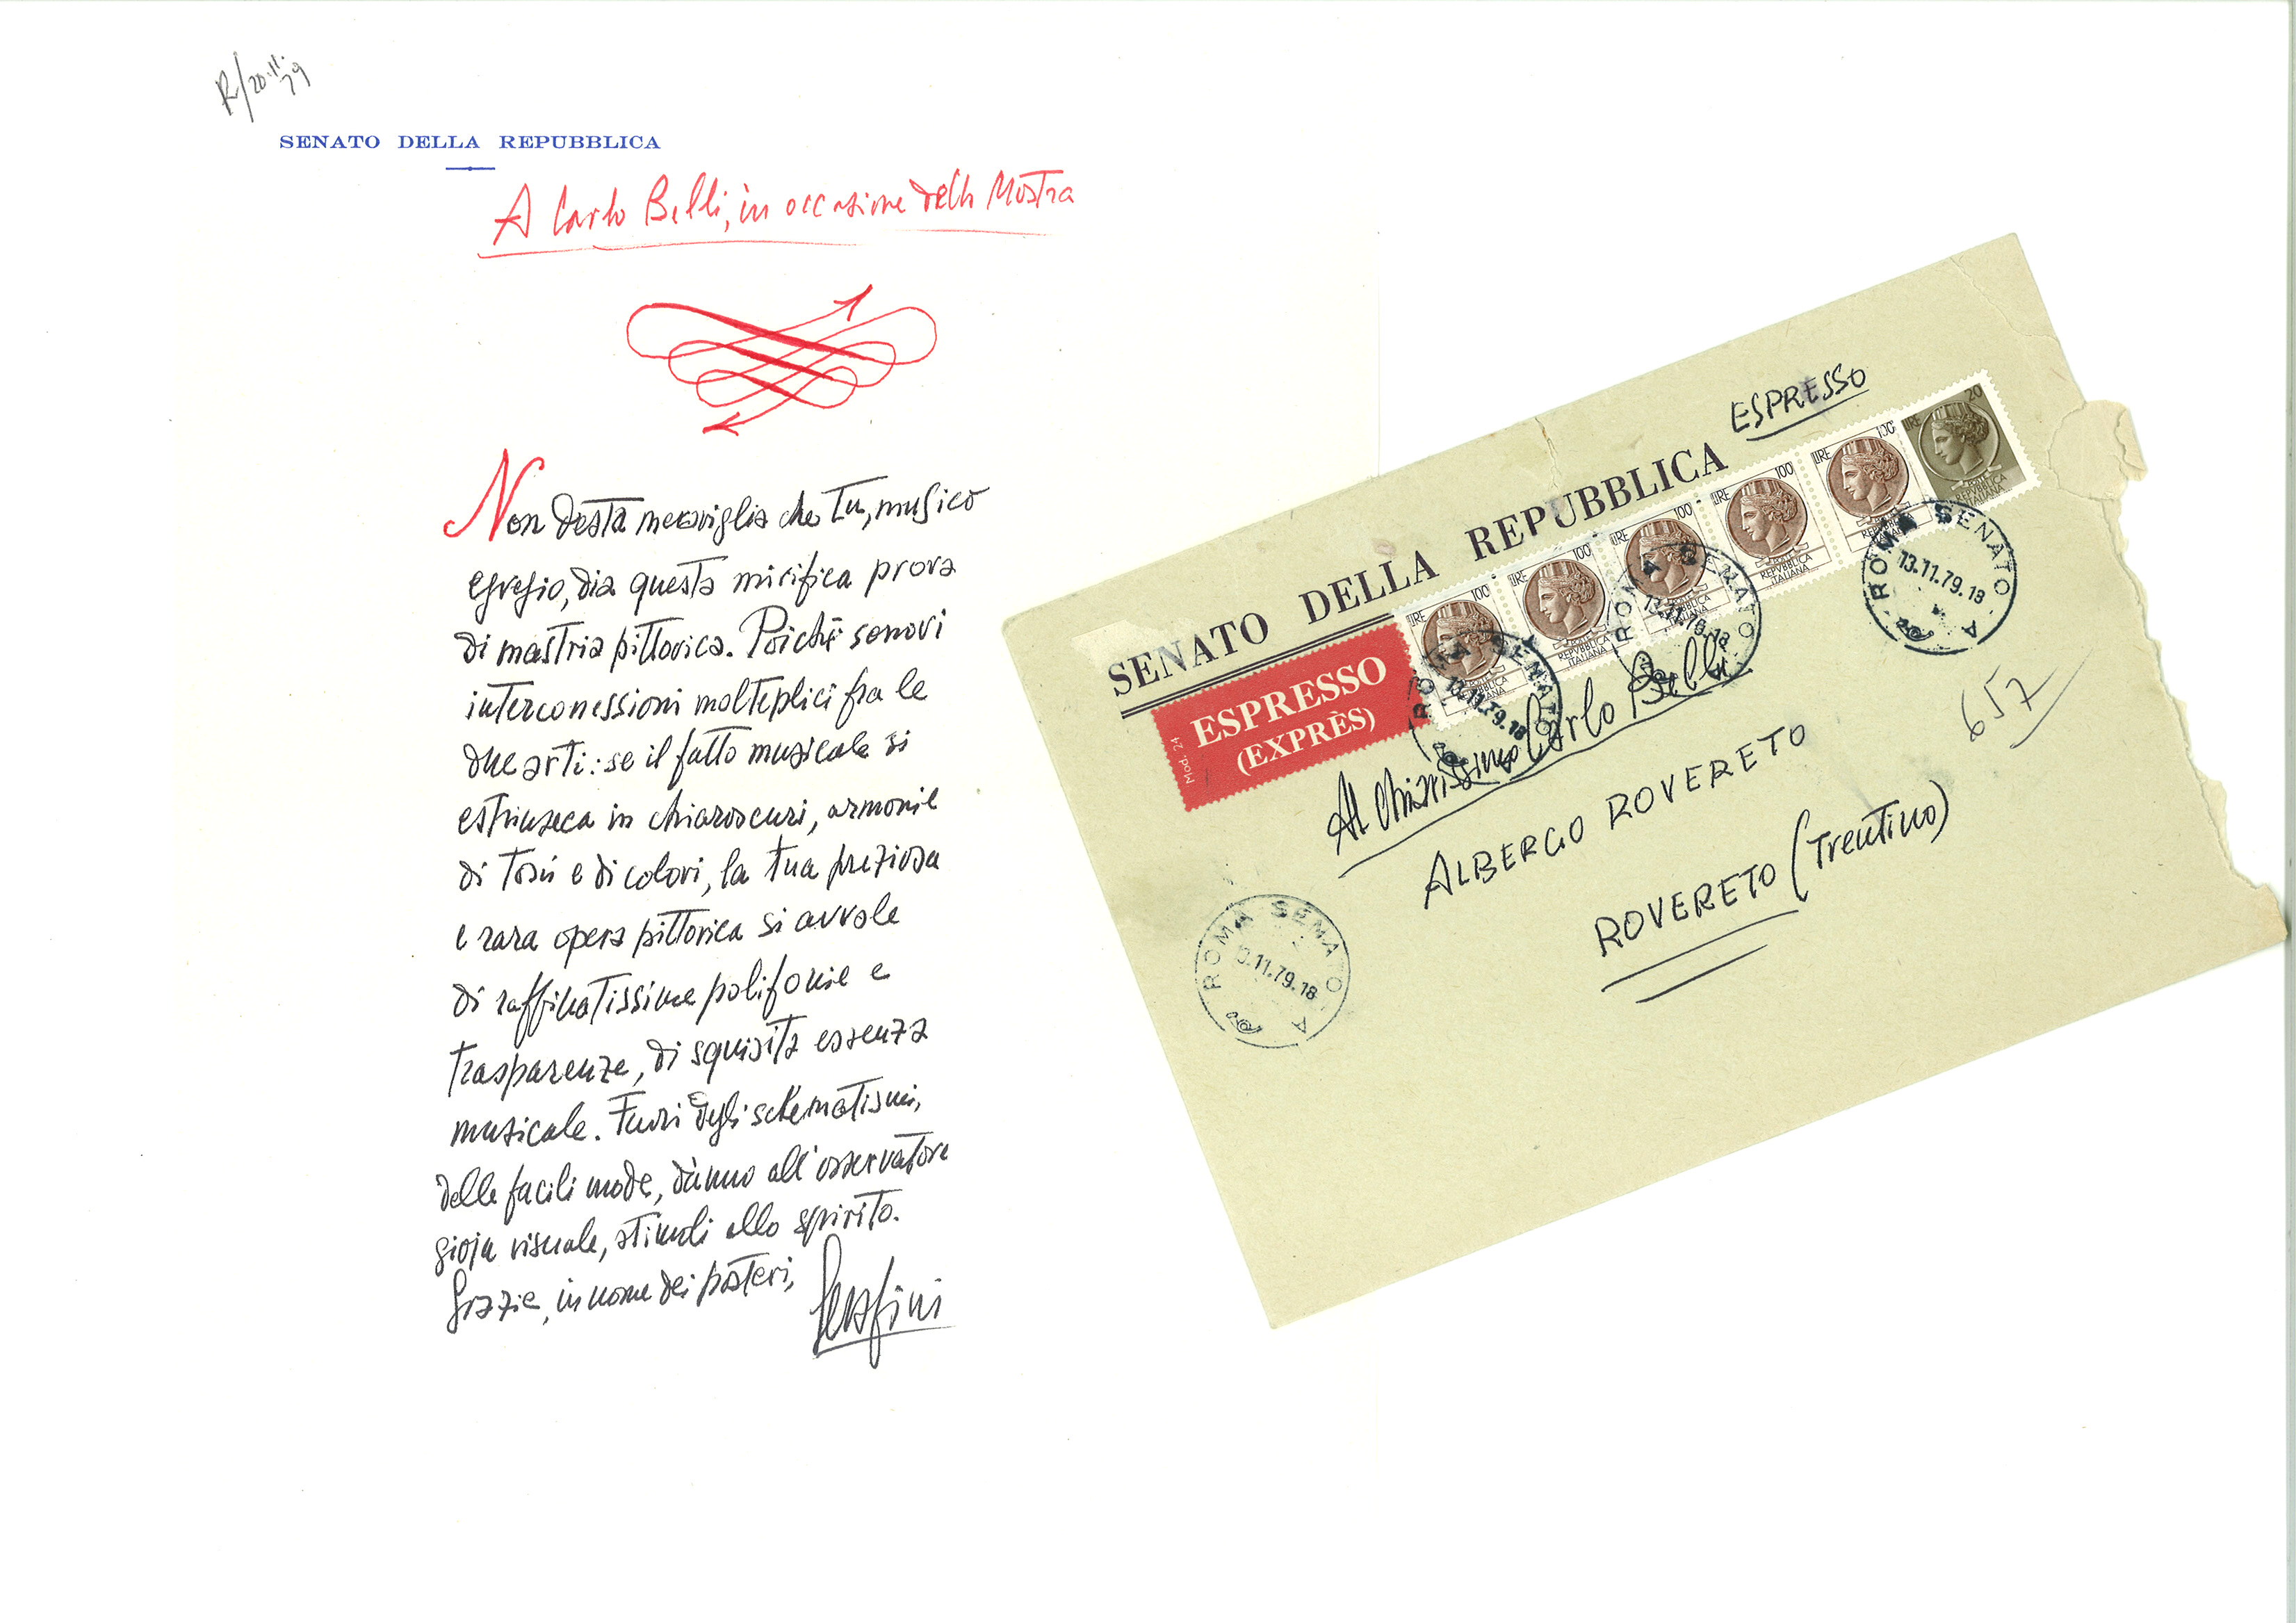 R/20.11.79
SENATO DELLA REPUBBLICA
A Carlo Belli, in occasione della Mostra
Non desta meraviglia che Tu, musico
egregio, dia questa mirifica prova
di mastria pittorica. Poiché sonovi
interconessioni molteplici fra le
due arti: se il fatto musicale si
estrinseca in chiaroscuri, armonie
di toni e di colori, la tua preziosa
e rara opera pittorica si avvale
di raffinatissime polifonie e
trasparenze, di squisita essenza
musicale. Fuori degli schematismi,
delle facili mode, dànno all'osservatore
gioja visuale, stimoli allo spirito.
Grazie, in nome dei pòsteri,
Serafini
SENATO DELLA REPUBBLICA
ESPRESSO
LIRE 100
REPVBBLICA ITALIANA
LIRE 100
REPVBBLICA ITALIANA
LIRE 100
REPVBBLICA ITALIANA
LIRE 100
REPVBBLICA ITALIANA
LIRE 100
REPVBBLICA ITALIANA
LIRE 20
REPVBBLICA ITALIANA
Mod. 24
ESPRESSO
(EXPRÈS)
ROMA SENATO
13.11.79.18
A
ROMA SENATO
13.11.79.18
ROMA SENATO
13.11.79.18
Al Chiarissimo Carlo Belli
ALBERGO ROVERETO
ROVERETO (Trentino)
657
ROMA SENATO
3.11.79.18
A